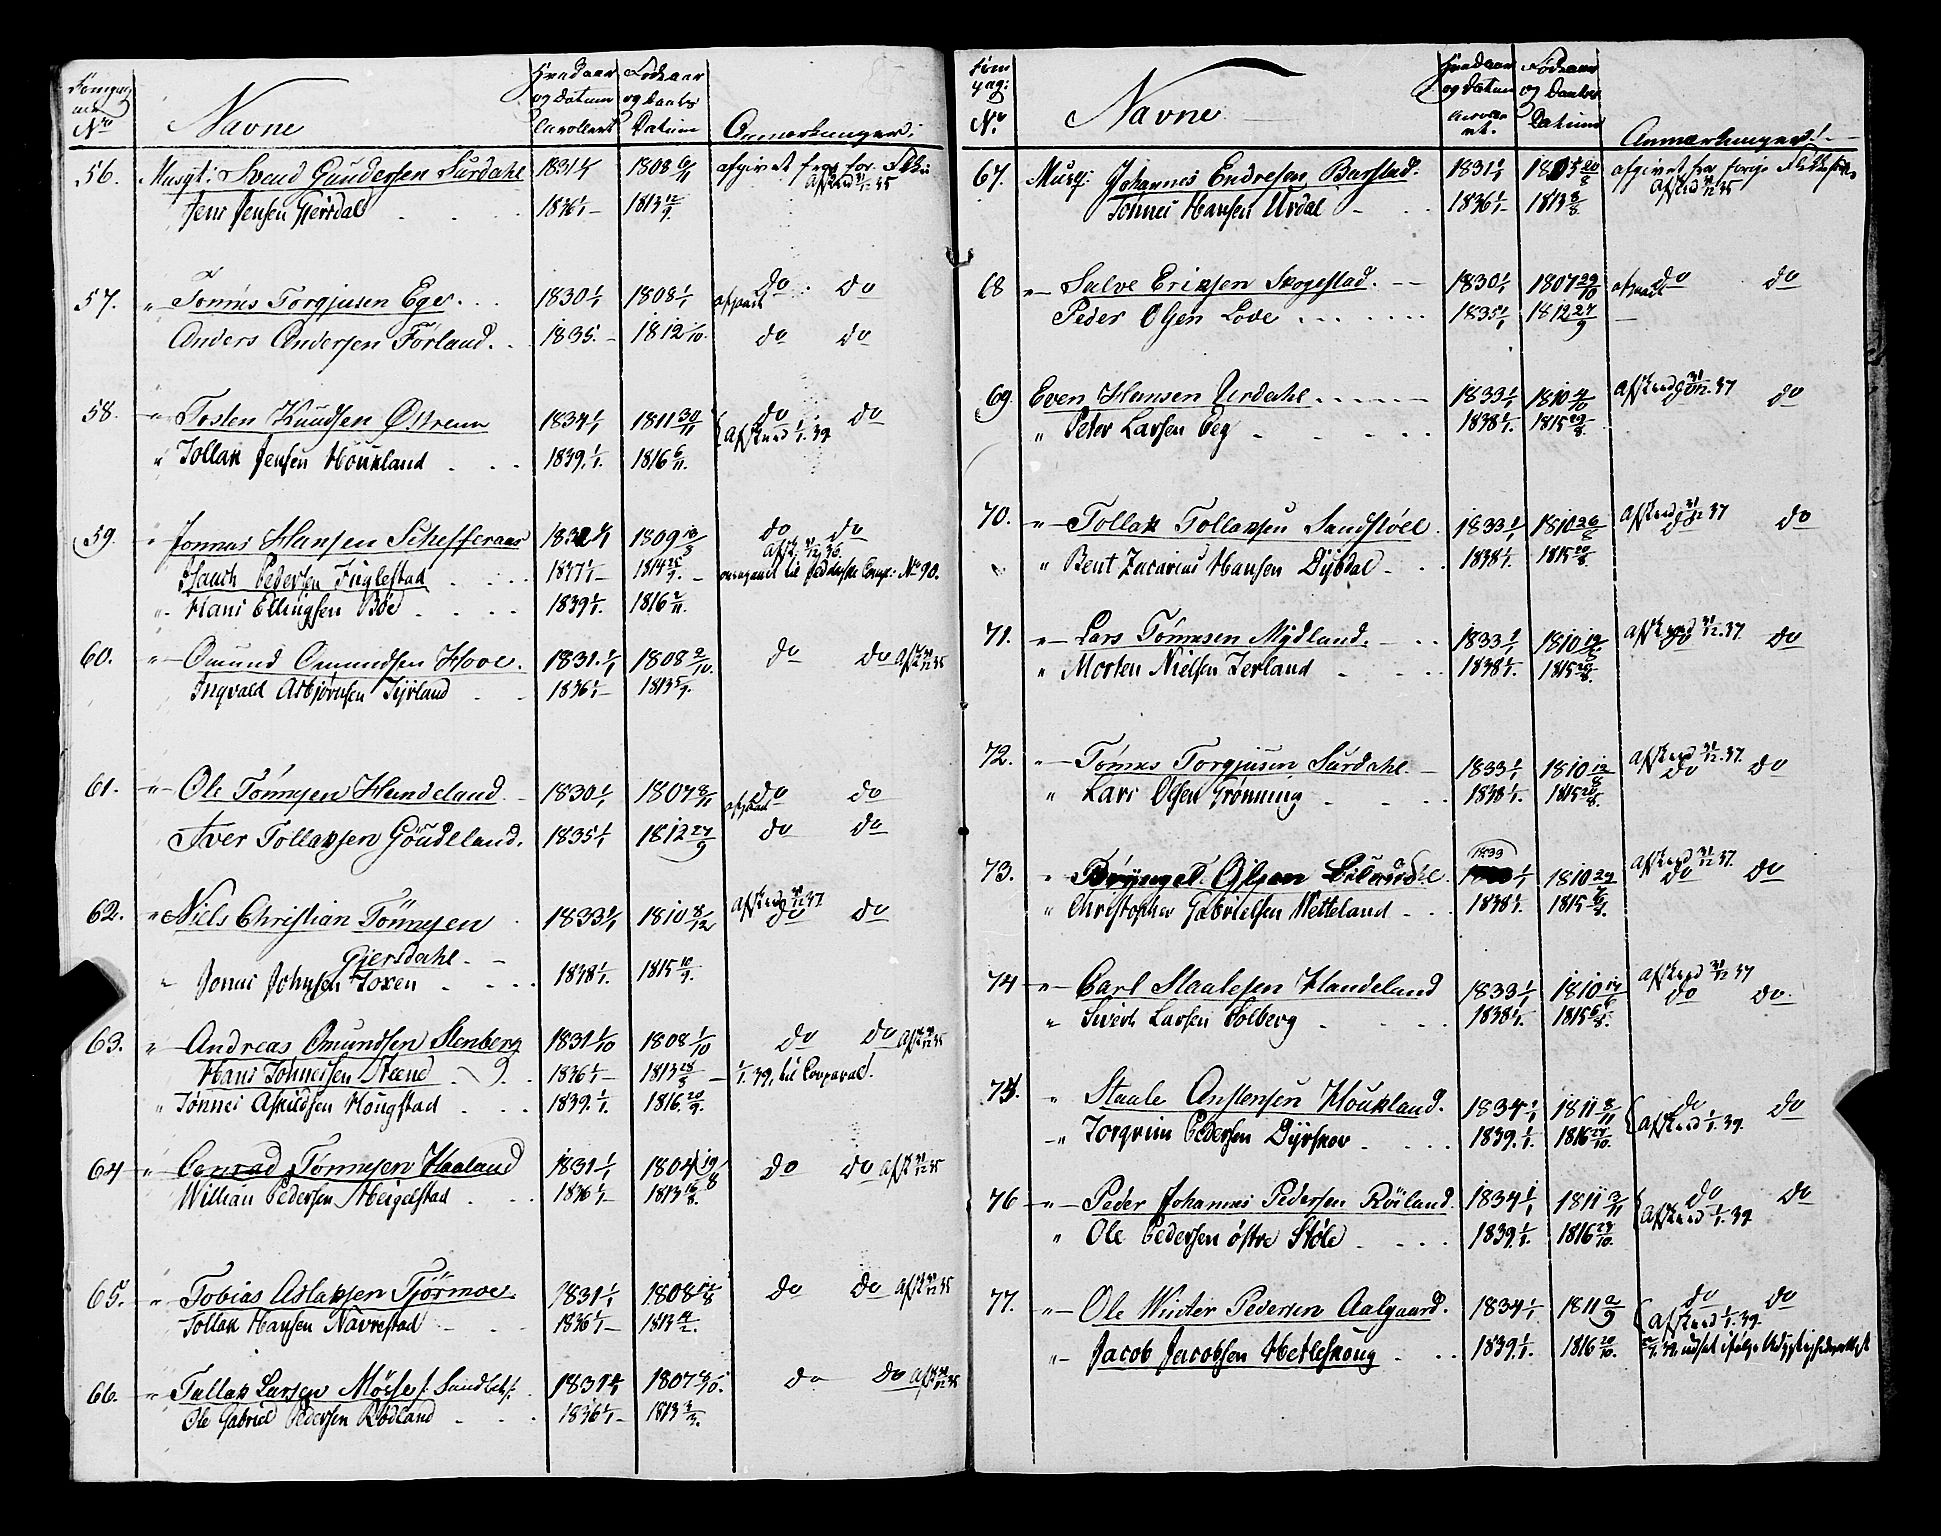 Navne
og datum
og Daabs
Datum
Anmærkninger.
56. Musqt: Svend Gundersen Surdahl 1831 1/1 1808 6/11 afgivet fra
Afskeed 31/12 35
Jens Jensen Gjersdal 1836 1/1 1813 12/9.
57. " Tønnes Torgjusen Ege 1830 1/1 1808 1/1 afgaaet do do
Anders Andersen Førland. 1835. 1812 1/10. do do
58. " Tosten Knudsen Østrem 1834 1/1 1811 30/11 do do
Afskeed 1/1. 39
" Tollak Jensen Houkland 1839. 1/1 1816 6/11.
59. " Jonnas Hansen 1832 1/1 1809 do do
Afsk. 31/12 36.
Pedersen Fuglestad 1837 1/1 1814 25/9. overgaaet til No 90.
" Hans Ellingsen Böe 1839 1/1 1816 2/11.
60. " Omund Omundsen Hove. 1831. 1/1 1808 2/10. do do Afsk 31/12 35
Ingvald Asbjørnsen 1836 1/1 1813 5/9.
61. " Ole Tønnesen Handeland 1830 1/1 1807 8/11 afgaaet do do
Iver Tollaksen Göudeland. 1835 1/1 1812 27/9 do do
62. " Niels Christian Tönnesen 1833 1/1 1810 8/12 Afskeed 31/12 37.
do do
Gjersdahl.
" Jonas Johnsen 1838 1/1. 1815 10/9.
63. " Andreas Omundsen Stenberg 1831 1/10 1808 1/10 do do Afsk 31/12 35
Hans Tønnesen 1836 1/1 1813 28/8 1/1. 39, til
" Tønnes Askildsen Hougstad 1839. 1/1. 1816. 20/9.
64 " Conrad Tønnesen Haaland 1831 1/1 1804 19/8 do do Afsk 31/12 35
William Pedersen Heigelstad 1836 1/1 1813 16/8.
65. " Tobias Aslaksen Tjörmoe 1831 1/1 1808 do do Afsk 31/12 35
Tollak Hansen Navrestad 1836 1/1 1813 14/2.
66. " Tallak Larsen 1831 1807 do do Afsk 31/12 35
Ole Gabriel Pedersen Rødland 1836 1/1 1813 3/3.
Navne
og datum
og Daabs
Datum
Anmærkninger!
67. Musq: Johannes Endresen Barstad. 1831 1/1 afgivet fra forrige
Afskeed 31/12 35
Tønnes Hansen Urdal 1836 1/1 1813 8/8.
68 " Salve Eriksen Skogestad. 1830 1/1 1807 29/10 afgaaet do do
Peder Olsen Love 1835 1/1 1812 27/9
69. Even Hansen Urdahl 1833 1/1 1810 4/10 Afskeed 31/12 37
do do
" Peter Larsen Eeg 1838 1/1. 1815 29/8.
70. " Tollak Tollaksen Sandstöel 1833 1/1 1810 26/8 Afskeed 31/12 37
do do
" Bent Zacarias Hansen Dybdal 1838 1/1. 1815 20/8.
71. " Lars Tönnesen Mydland. 1833 1/1 1810 Afskeed 31/12. 37.
do do
" Morten Nielsen 1838 1/1. 1815 20/8.
72. " Tönnes Torgjusen Surdahl. 1833 1/1 1810 12/8 Afskeed 31/12. 37.
do do
" Lars Olsen Grønning 1838 1/1. 1815 20/8.
73. " Olsen 1833 1/1 1810 Afskeed 31/12 37.
do do
" Christopher Gabrielsen Netteland 1838 1/1. 1815
74 " Carl Staalesen Handeland 1833 1/1 1810 Afskeed 31/12 37
do do.
" Sivert Larsen Solberg 1838 1/1. 1815 6/8.
75. " Staale Anstensen Houkland. 1834 1/1 1811 8/11 do do
Afskeed 1/1. 39.
" Torgrim Pedersen Dyrskov 1839. 1/1. 1816 27/10.
76 " Peder Johannes Pedersen Röiland. 1834 1/1 1811 3/11 do do
Afskeed 1/1. 39
" Ole Pedersen østre Støle 1839. 1/1. 1816 23/10.
77. " Ole Winter Pedersen Aalgaard. 1834 1/1 1811 2/9 do do
Afskeed 1/1. 39.
" Jacob Jacobsen Hetleskoug 1839. 1/1. 1816 20/10.